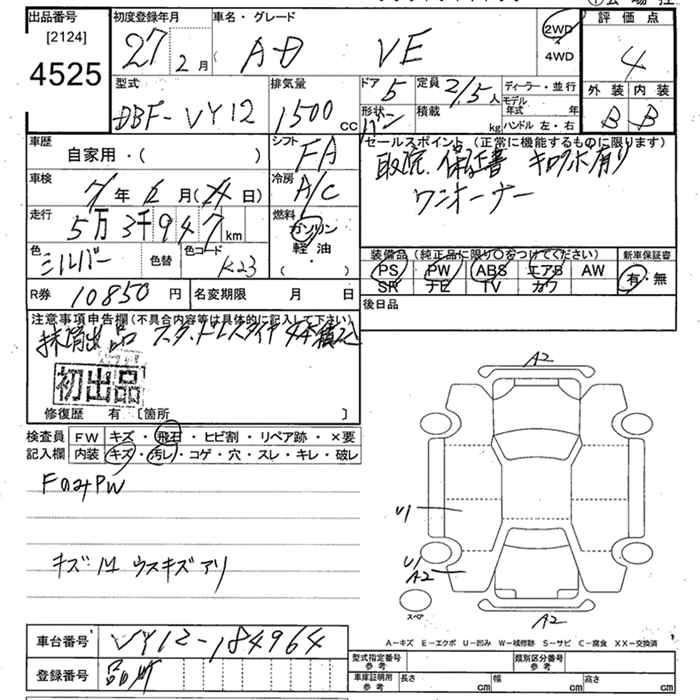 出品番号
[2124]
4525
初度登録年月
27年2月
車名・グレード
AD VE
2WD
4WD
評価点
4
外装 内装
B B
型式
DBF-VY12
排気量
1500cc
ドア 5
形状 バン
定員 2/5人
積載 kg
ディーラー・並行
モデル年式 年
ハンドル 左・右
車歴
自家用・( )
シフト
FA
車検
7年2月(24日)
冷房
A/C
走行
5万3千947km
燃料
ガソリン
軽・油
( )
色
シルバー
色替
色コード
K23
R券 10850円
名変期限 月 日
セールスポイント (正常に機能するものに限ります)
取説 保証書 キロク求有り
ワンオーナー
装備品(純正品に限り○をつけてください)
PS PW ABS エアB AW
SR ナビ TV カワ
新車保証書
有・無
後日品
注意事項申告欄(不具合内容等は具体的に記入して下さい)
抹消出品 スタッドレスタイヤ4本積込
初出品
修復歴 有 [箇所 ]
検査員記入欄
FW キズ・飛石・ヒビ割・リペア跡・×要
内装 キズ・汚レ・コゲ・穴・スレ・キレ・破レ
FのみPW
キズ凹 ウスキズアリ
A2
U1
U1
A2
A2
スペア
A-キズ E-エクボ U-凹み W-補修跡 S-サビ C-腐食 XX-交換済
車台番号 VY12-184964
登録番号
型式指定番号 参考
類別区分番号 参考
車庫証明用 参考
長さ cm 幅 cm 高さ cm